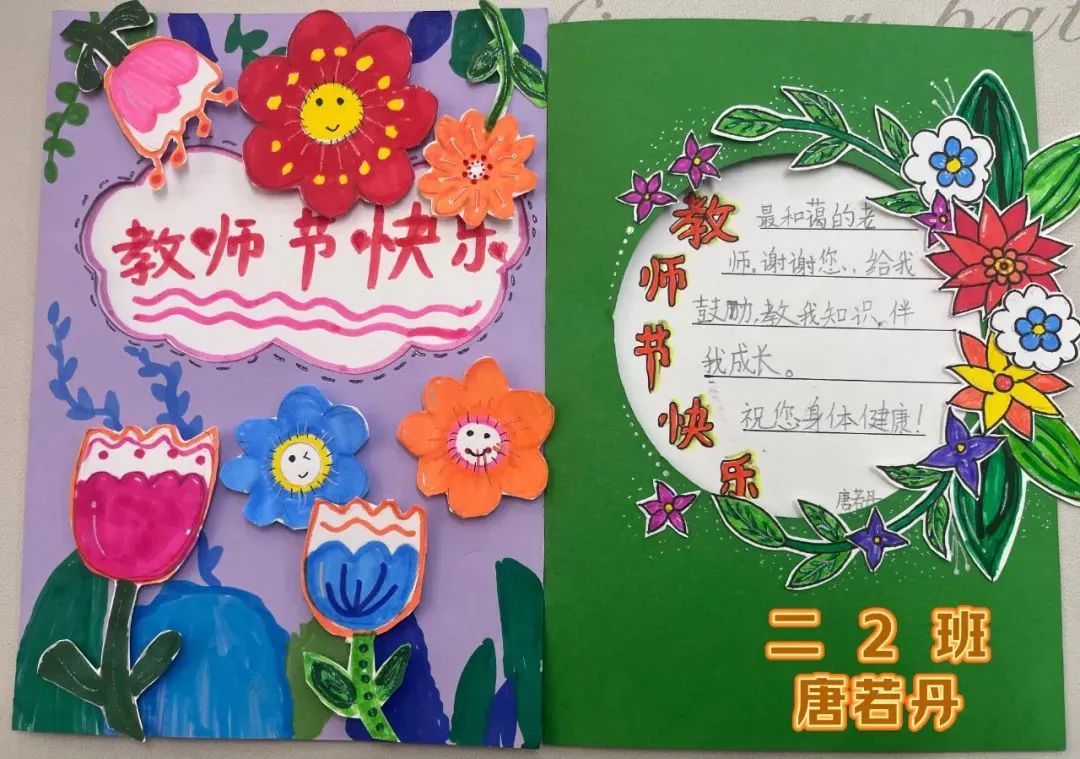 教师节快乐
教师节快乐
最和蔼的老
师,谢谢您、给我
鼓励,教我知识,伴
我成长。
祝您身体健康!
唐若丹
二 2 班
唐若丹